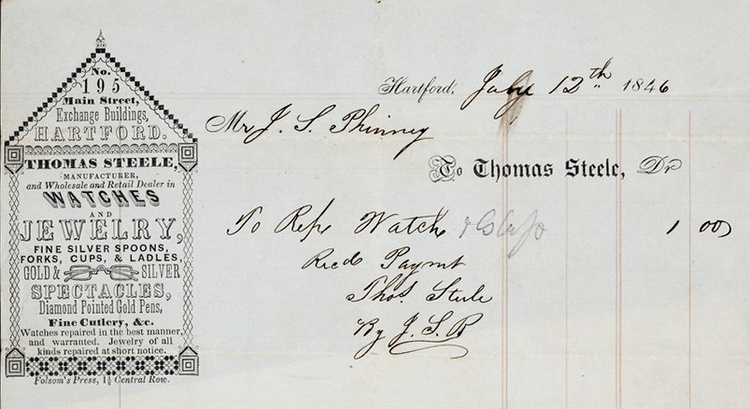 No.
195
Main Street,
Exchange Buildings,
HARTFORD.
THOMAS STEELE,
MANUFACTURER,
and Wholesale and Retail Dealer in
WATCHES
AND
JEWELRY,
FINE SILVER SPOONS,
FORKS, CUPS, & LADLES,
GOLD & SILVER
SPECTACLES,
Diamond Pointed Gold Pens,
Fine Cutlery, &c.
Watches repaired in the best manner,
and warranted. Jewelry of all
kinds repaired at short notice.
Folsom's Press, 1½ Central Row.
Hartford, July 12th 1846
Mr J. S. Phinney
To Thomas Steele, Dr
To Rep Watch & Glass 1 00
Recd Paymt
Thos. Steele
By J. S. B